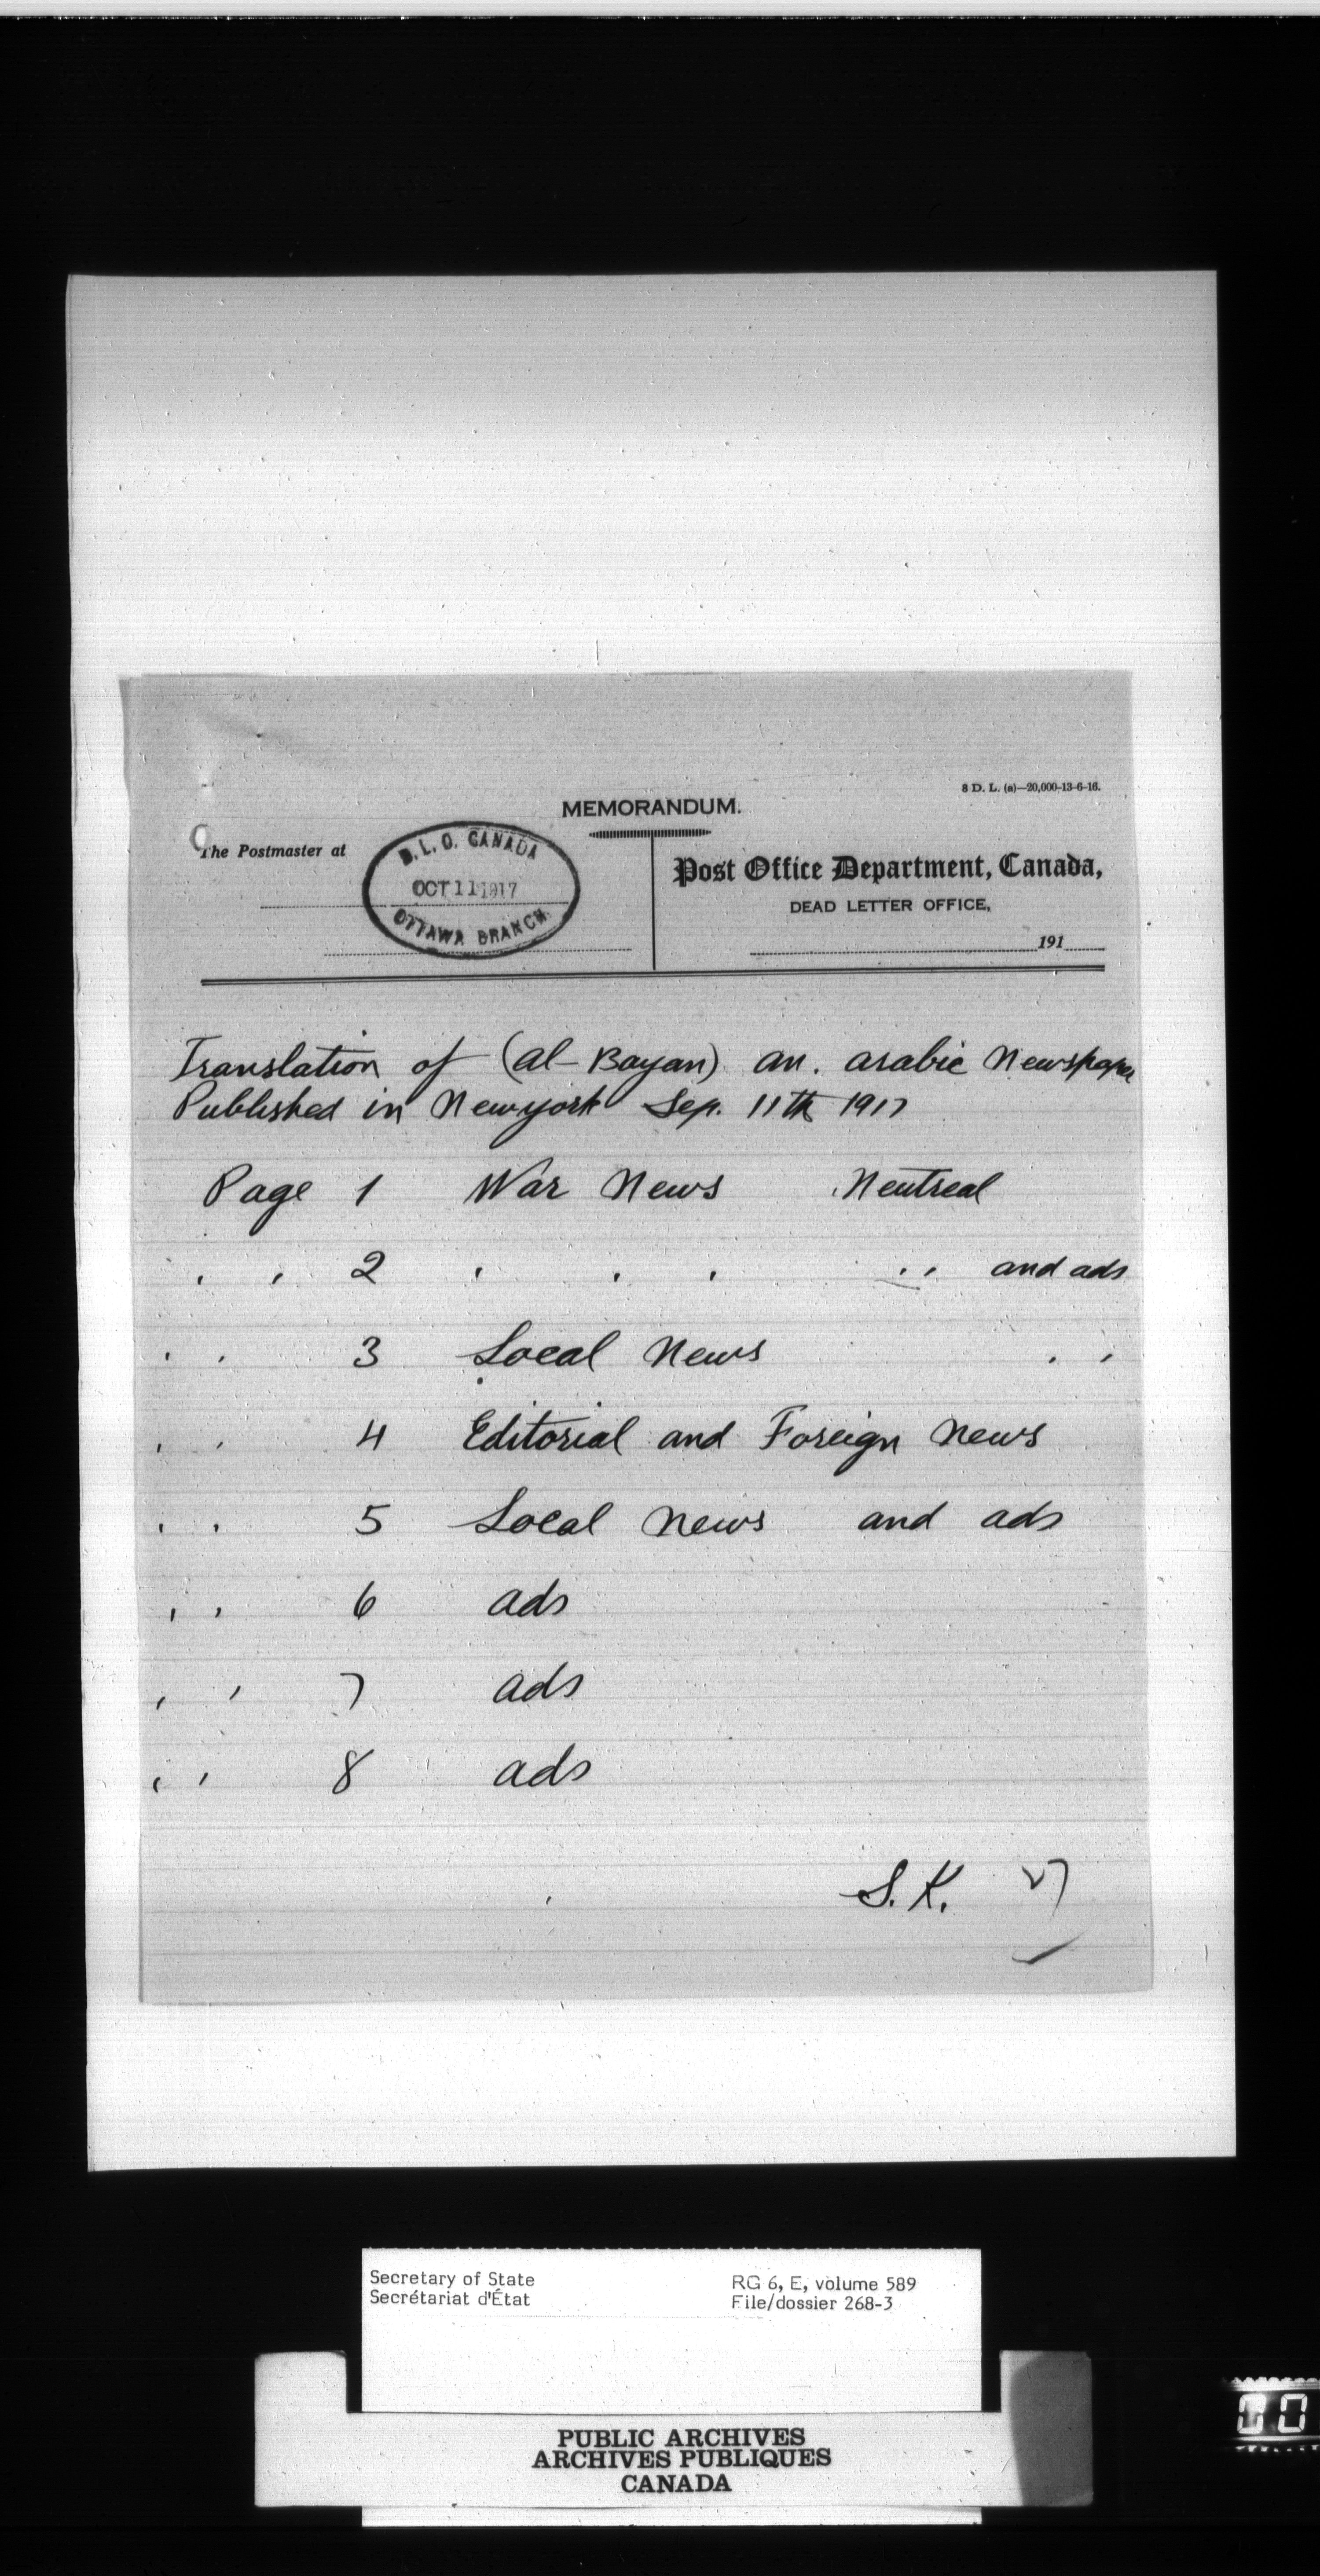 8 D. L. (a)—20,000-13-6-16.
MEMORANDUM.
The Postmaster at
D. L. O. CANADA
OCT 11 1917
OTTAWA BRANCH
Post Office Department, Canada,
DEAD LETTER OFFICE,
191
Translation of (al-Bayan) an. arabic Newspaper
Published in Newyork Sep. 11th 1917
Page 1 War News Neutreal
" " 2 " " " " and ads
" " 3 Local News " "
" " 4 Editorial and Foreign News
" " 5 Local News and ads
" " 6 ads
" " 7 ads
" " 8 ads
S. K.
Secretary of State
Secrétariat d'État
RG 6, E, volume 589
File/dossier 268-3
PUBLIC ARCHIVES
ARCHIVES PUBLIQUES
CANADA